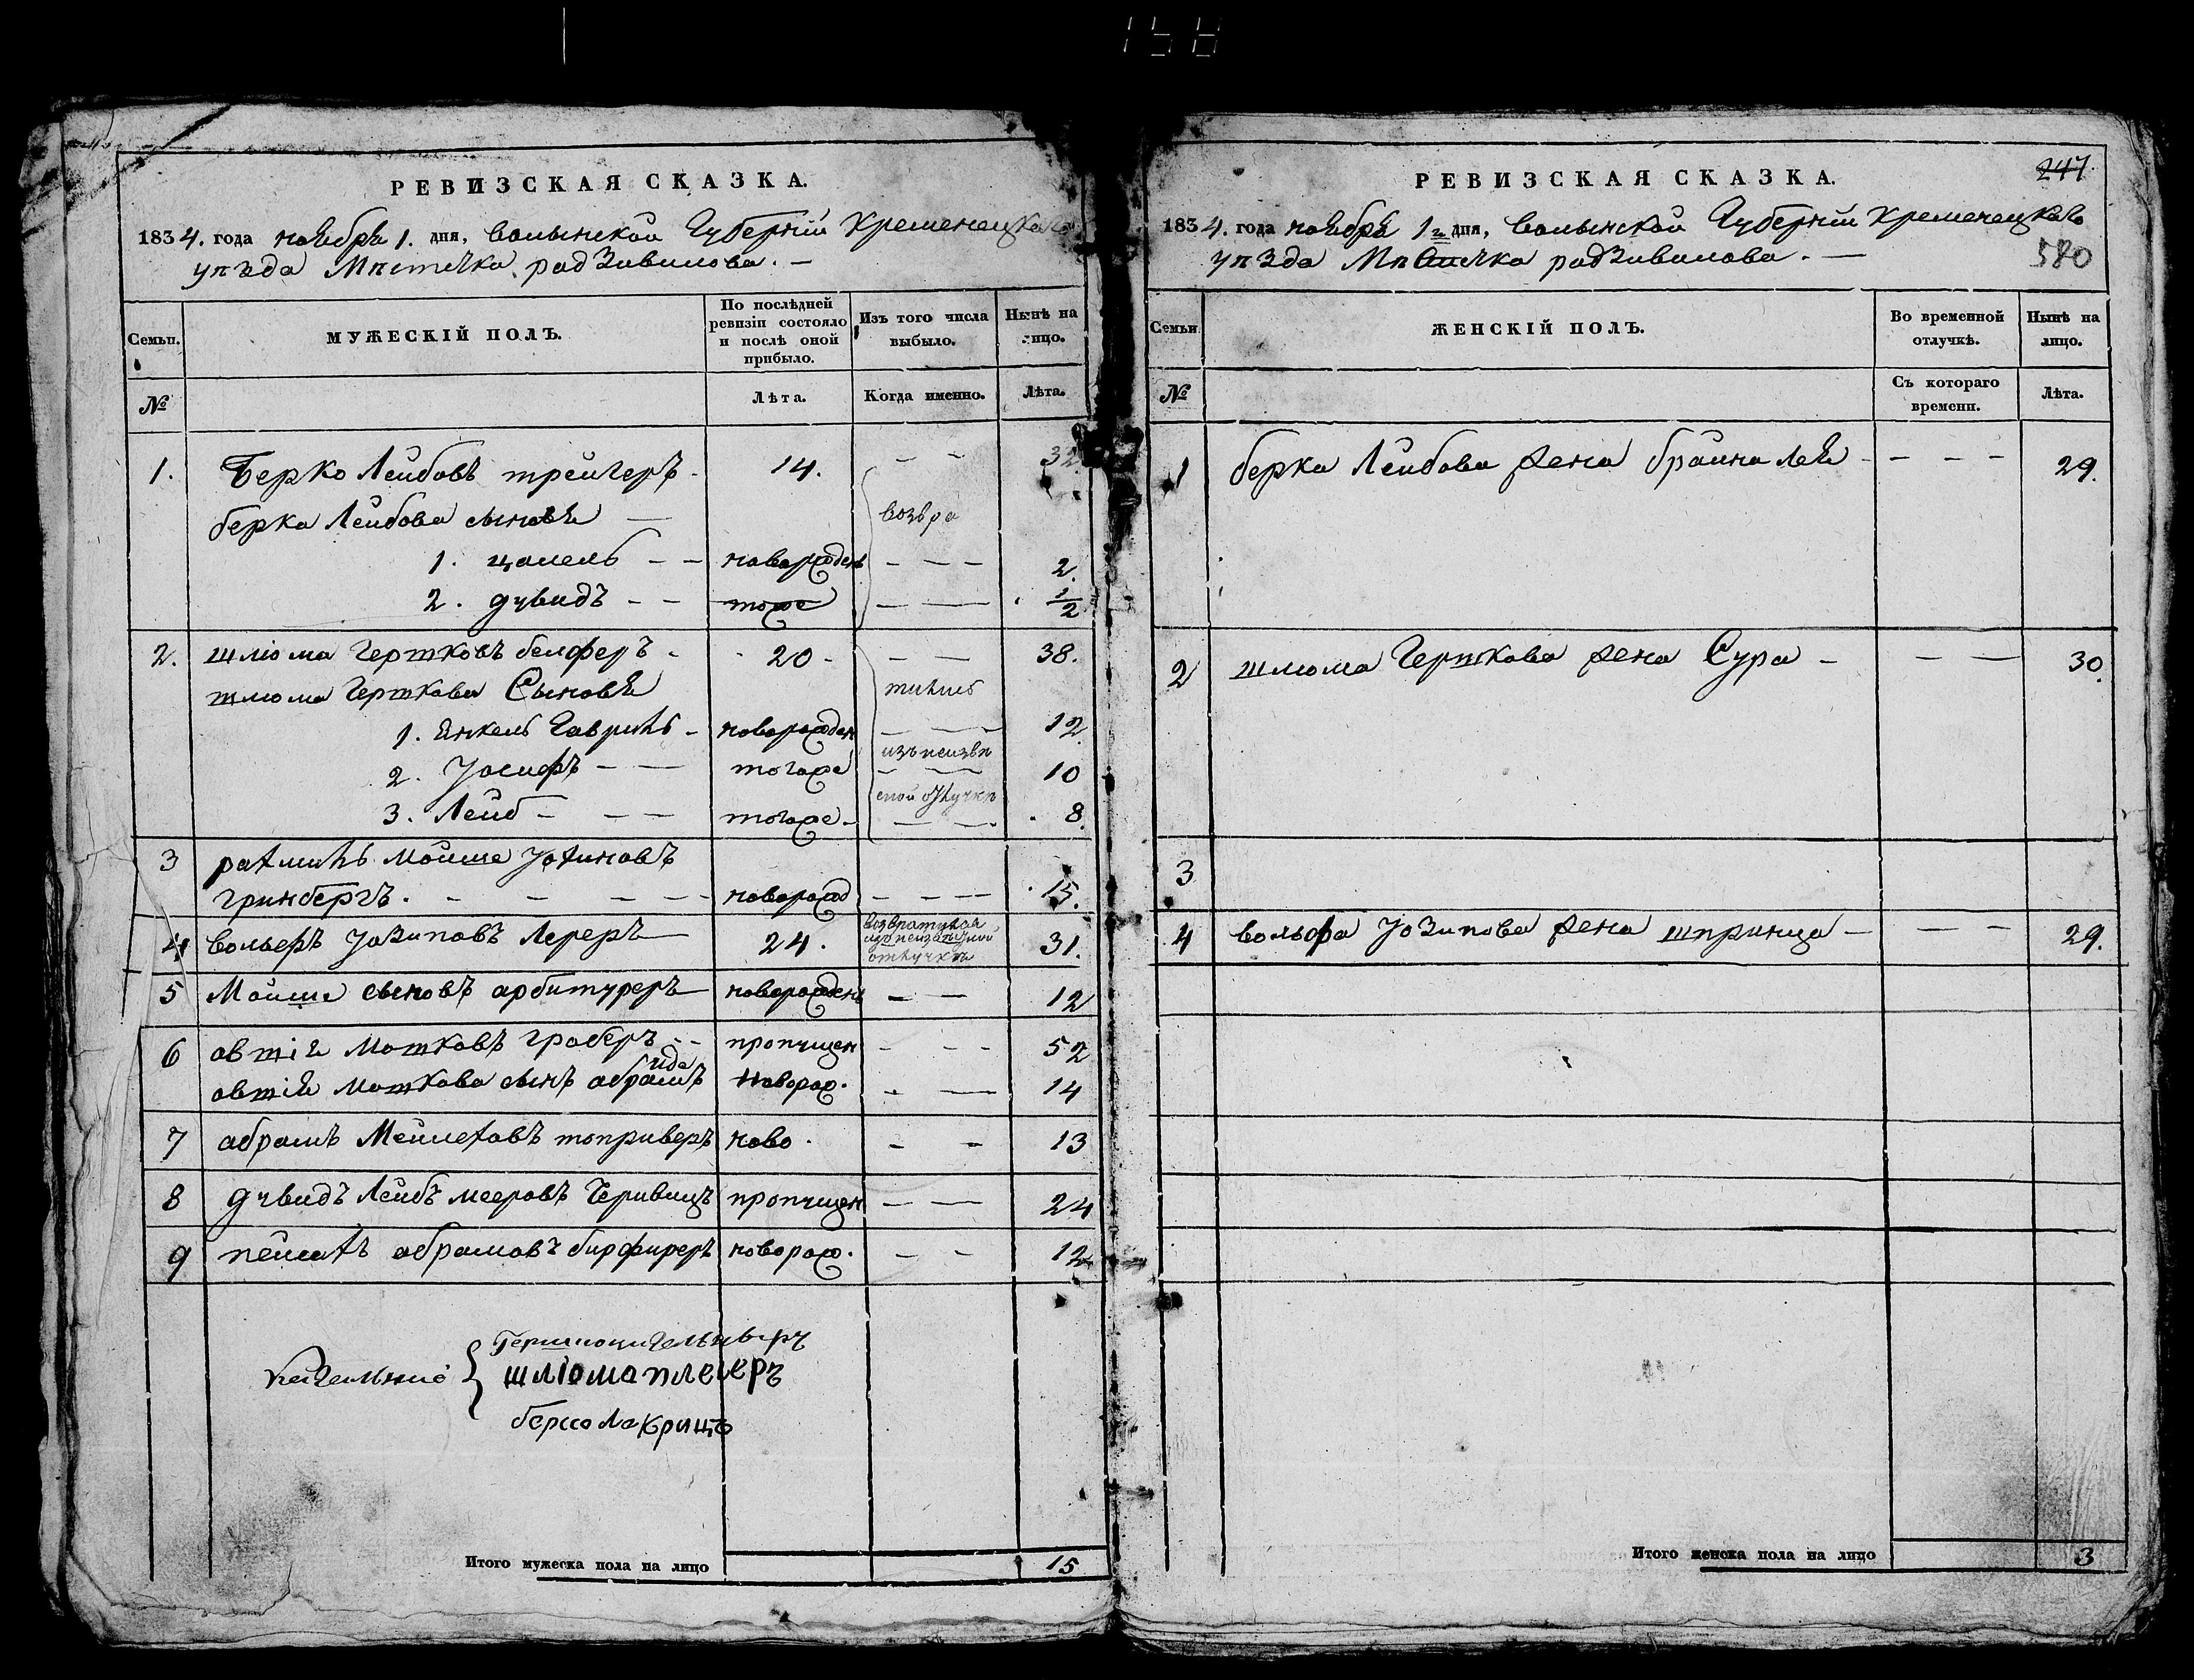 158
РЕВИЗСКАЯ СКАЗКА.
1834. года ноября 1. дня, Волынской Губерніи Кременецкаго
уѣзда Мѣстечка радзивилова. —
Семьи.
МУЖЕСКІЙ ПОЛЪ.
По послѣдней ревизіи состояло и послѣ оной прибыло.
Изъ того числа выбыло.
Нынѣ на лицо.
№
Лѣта.
Когда именно.
Лѣта.
1. Берко Лейбовъ трейгеръ - 14. - - 32
берка Лейбова сыновя —
1. цалель - - новорожден - - - 2.
2. дувидъ - - тоже — — 1/2
возвра
2. шлюма Гершковъ белферъ - 20 - — — 38.
шлюма Гершкова Сыновя
1. Янкель Гаврилъ - новорожден — — 12
2. Іосифъ - — тогоже — — 10
3. Лейб - — — тогоже - — — 8.
изъ неизвѣ
стной отлучкѣ
3 рахмилъ Мойше Іохиновъ
гринбергъ. - - - - - новорожд - - - 15.
4 вольфъ Іозиповъ Лереръ — 24. 31.
возвратился
изъ неизвестной
отлучкѣ
5 Мойше сыновъ арбитуреръ — новорожден - - 12
6 овшія Мошковъ граберъ - - пропущен - - - 52
овшія Мошкова сынъ абрамъ Новорож. - — 14
7 абрамъ Мейлеховъ топриверъ ново - - - 13
8 дувидъ Лейбъ мееровъ Черивицъ пропущен - — 24
9 пейсахъ абрамовъ бирфиреръ новорож. - - 12
шліома плесеръ
берко Лакрицъ
Итого мужеска пола на лицо 15
РЕВИЗСКАЯ СКАЗКА.
247
1834. года ноября 1го дня, Волынской Губерніи Кременецкаго
уѣзда Мѣстечка радзивилова. —
580
Семьи.
ЖЕНСКІЙ ПОЛЪ.
Во временной отлучкѣ.
Нынѣ на лицо.
№
Съ котораго времени.
Лѣта.
1 берка Лейбова жена брайна Лея - - - - 29.
2 шлюма Гершкова жена Сура - — — 30.
3
4 вольфа Іозипова жена шпринца — — - 29.
Итого женска пола на лицо 3